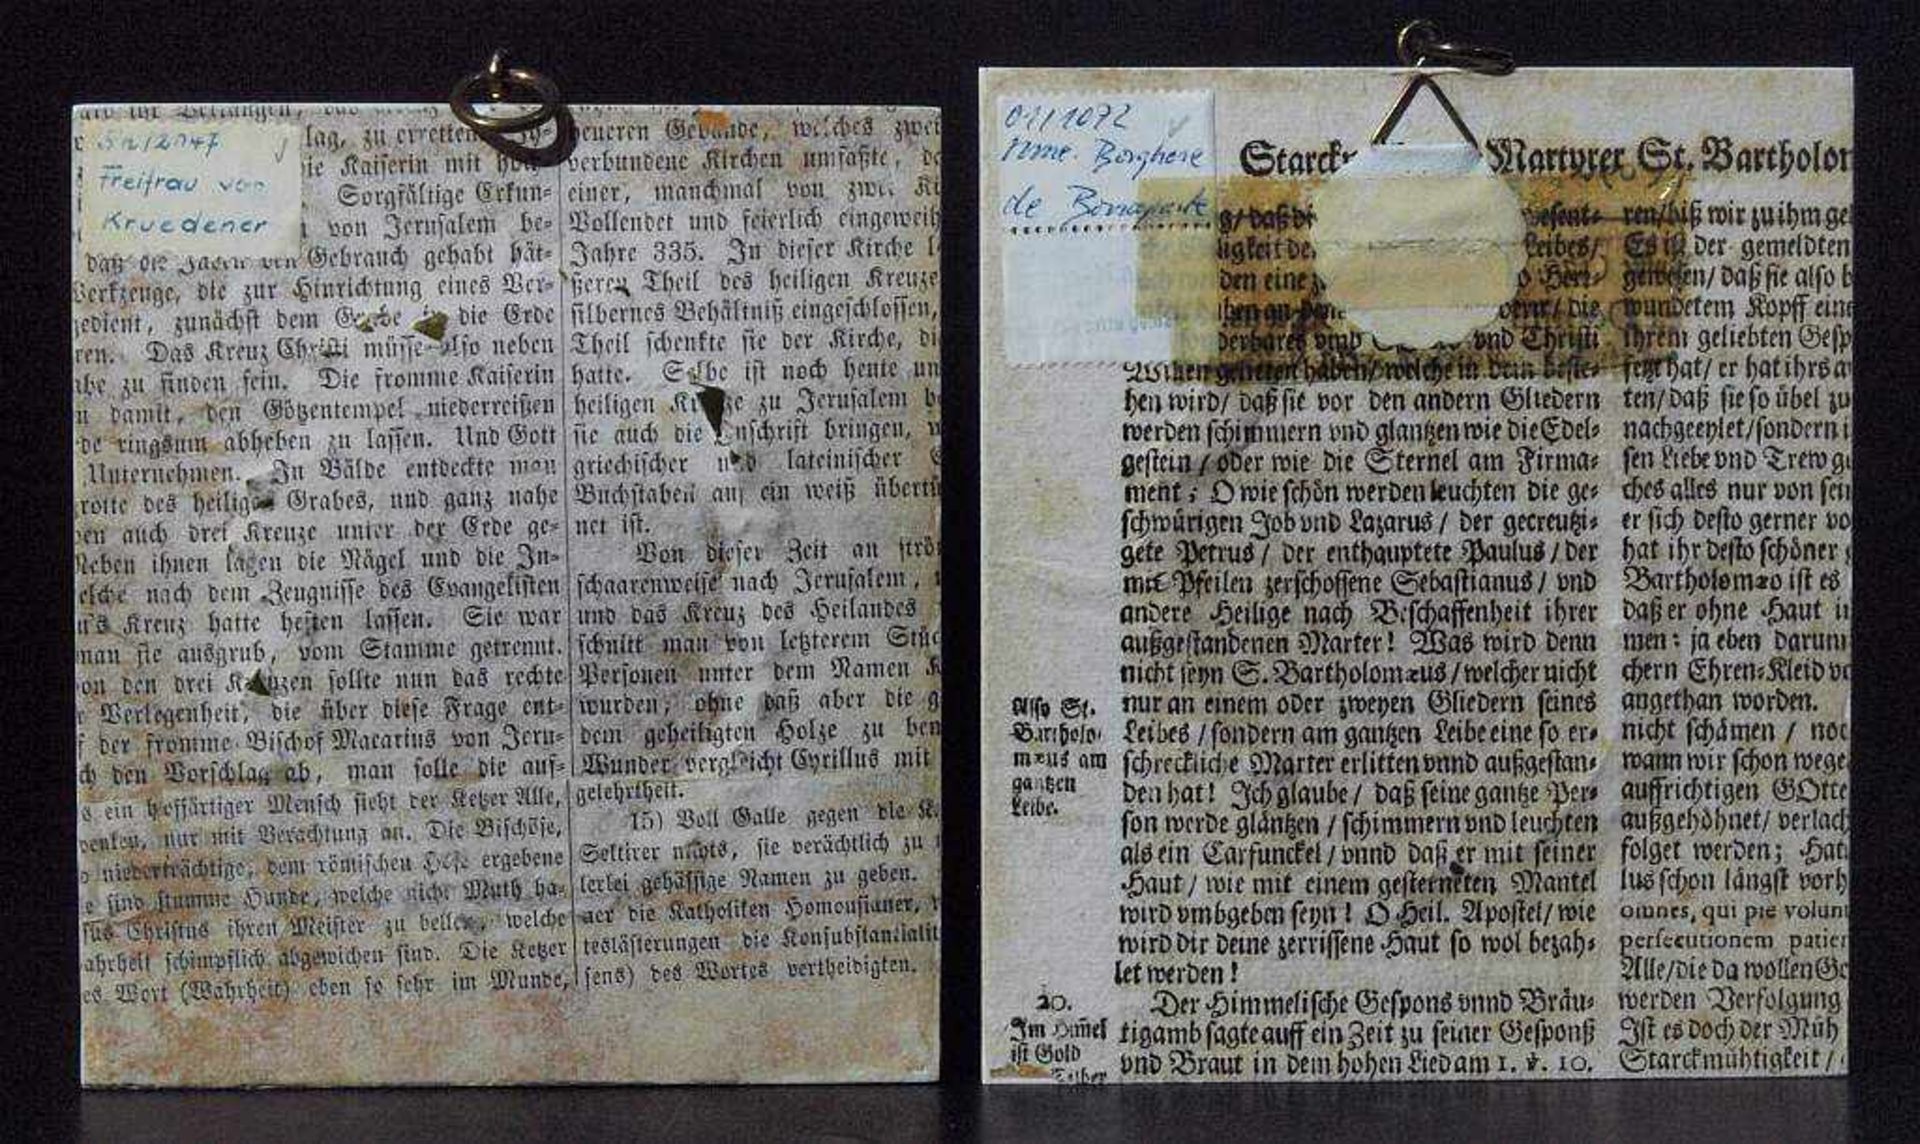 Freifrau von
Kruedener
lag, zu erretten
die Kaiserin mit
Sorgfältige Erkun-
von Jerusalem be-
Gebrauch gehabt hät-
Werkzeuge, die zur Hinrichtung eines Ver-
gedient, zunächst dem Grabe in die Erde
ren. Das Kreuz Christi müsse also neben
abe zu finden sein. Die fromme Kaiserin
n damit, den Götzentempel niederreißen
de ringsum abheben zu lassen. Und Gott
Unternehmen. In Bälde entdeckte man
rotte des heiligen Grabes, und ganz nahe
en auch drei Kreuze unter der Erde ge-
Neben ihnen lagen die Nägel und die In-
elche nach dem Zeugnisse des Evangelisten
n's Kreuz hatte heften lassen. Sie war
man sie ausgrub, vom Stamme getrennt.
on den drei Kreuzen sollte nun das rechte
Verlegenheit, die über diese Frage ent-
f der fromme Bischof Macarius von Jeru-
ch den Vorschlag ab, man solle die auf-
s ein hoffärtiger Mensch sieht der Ketzer Alle,
denken, nur mit Verachtung an. Die Bischöfe,
niederträchtige, dem römischen Hofe ergebene
e sind stumme Hunde, welche nicht Muth ha-
sus Christus ihren Meister zu bellen, welche
ahrheit schimpflich abgewichen sind. Die Ketzer
es Wort (Wahrheit) eben so sehr im Munde,
heueren Gebäude, welches zwei
verbundene Kirchen umfaßte,
einer, manchmal von zwei
Vollendet und feierlich eingeweih
Jahre 335. In dieser Kirche
ßeren Theil des heiligen Kreuze
silbernes Behältniß eingeschlossen,
Theil schenkte sie der Kirche, di
hatte. Selbe ist noch heute un
heiligen Kreuze zu Jerusalem
sie auch die Inschrift bringen,
griechischer und lateinischer
Buchstaben auf ein weiß übertü
net ist.
Von dieser Zeit an strö
schaarenweise nach Jerusalem,
und das Kreuz des Heilandes
schnitt man von letzterem Stüc
Personen unter dem Namen
wurden, ohne daß aber die g
dem geheiligten Holze zu ben
Wunder vergleicht Cyrillus mit
gelehrtheit.
15) Voll Galle gegen die K
Sektirer nichts, sie verächtlich zu
lerlei gehässige Namen zu geben.
ner die Katholiken Homousianer,
teslästerungen die Konsubstancialit
sens) des Wortes vertheidigten.
01/1072
Mme. Borghese
de Bonaparte
Starck Martyrer St. Bartholo
Also St.
Bartholo-
mæus am
gantzen
Leibe.
20.
Im Himel
ist Gold
g/ daß di esent-
ligkeit de Leibes/
den eine
derbares vnd vnd Christi
hen wird/ daß sie vor den andern Gliedern
werden schimmern vnd glantzen wie die Edel-
gestein / oder wie die Sternel am Firma-
ment; O wie schön werden leuchten die ge-
schwürigen Job vnd Lazarus / der gecreutzi-
gete Petrus / der enthauptete Paulus / der
mit Pfeilen zerschossene Sebastianus / vnd
andere Heilige nach Beschaffenheit ihrer
außgestandenen Marter! Was wird denn
nicht seyn S. Bartholomæus / welcher nicht
nur an einem oder zweyen Gliedern seines
Leibes / sondern am gantzen Leibe eine so er-
schreckliche Marter erlitten vnnd außgestan-
den hat! Ich glaube / daß seine gantze Per-
son werde gläntzen / schimmern vnd leuchten
als ein Carfunckel / vnnd daß er mit seiner
Haut / wie mit einem gesterneten Mantel
wird vmbgeben seyn! O Heil. Apostel / wie
wird dir deine zerrissene Haut so wol bezah-
let werden!
Der Himmelische Gespons vnnd Bräu-
tigamb sagte auff ein Zeit zu seiner Gesponß
vnd Braut in dem hohen Lied am 1. v. 10.
ren/ biß wir zu ihm ge
Es ist der gemeldten
gewesen/ daß sie also b
wundetem Kopff ein
ihrem geliebten Gesp
setzt hat/ er hat ihrs a
ten/ daß sie so übel zu
nachgeeylet/ sondern i
sen Liebe vnd Trew g
ches alles nur von sei
er sich desto gerner vo
hat ihr desto schöner
Bartholomæo ist es
daß er ohne Haut i
men: ja eben darum
chern Ehren-Kleid v
angethan worden.
nicht schämen / noc
wann wir schon wege
auffrichtigen GOtte
außgehöhnet/ verlach
folget werden; Hat
lus schon längst vorh
omnes, qui pie volun
persecutionem patien
Alle/ die da wollen Go
werden Verfolgung
Ist es doch der Müh
Starckmühtigkeit /